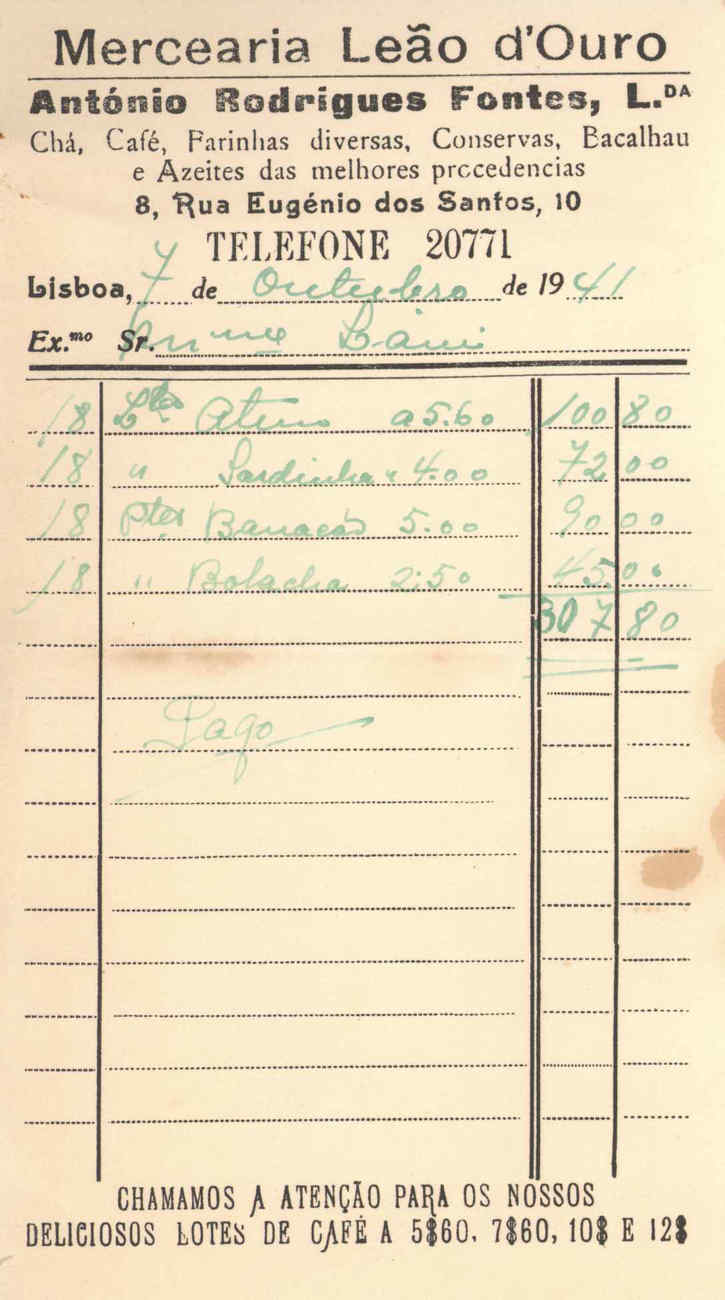 Mercearia Leão d'Ouro
António Rodrigues Fontes, L.DA
Chá, Café, Farinhas diversas, Conservas, Bacalhau
e Azeites das melhores procedencias
8, Rua Eugénio dos Santos, 10
TELEFONE 20771
Lisboa, 7 de Outubro de 1941
Ex.mo Sr.
18 Lts Atum a 5.60 100 80
18 " Sardinha " 4.00 72 00
18 Pter 5.00 90 00
18 " Bolacha 2.50 45.00
307 80
Pago
CHAMAMOS A ATENÇÃO PARA OS NOSSOS
DELICIOSOS LOTES DE CAFÉ A 5$60, 7$60, 10$ E 12$